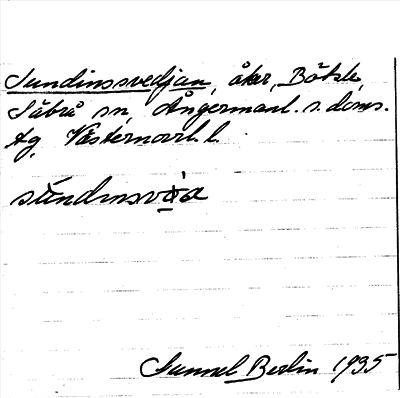 Sundinssvedjan, åker, Bökle,
Säbrå sn, Ångermanl. s. doms.
Ag. Västernorrl. l.
Samuel Berlin 1935